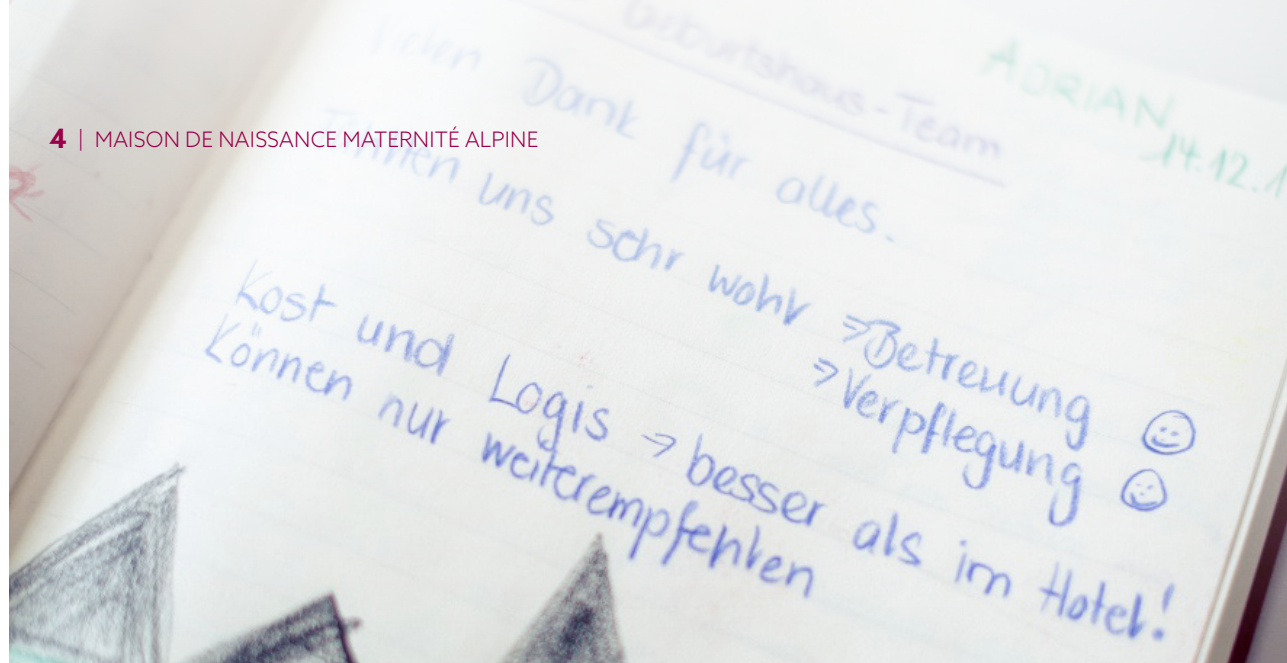 4 | MAISON DE NAISSANCE MATERNITÉ ALPINE
Geburtshaus-Team
ADRIAN
14.12.1
Vielen Dank für alles.
uns sehr wohl ⇒Betreuung ☺
⇒Verpflegung ☺
Kost und Logis → besser als im Hotel!
Können nur weiterempfehlen